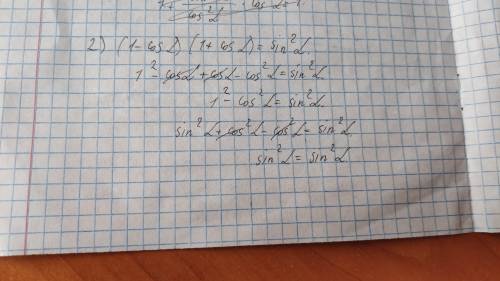 cos²α · cos²α = 1.
2) (1 - cosα) (1 + cosα) = sin²α.
1² - cosα + cosα - cos²α = sin²α.
1² - cos²α = sin²α.
sin²α + cos²α - cos²α = sin²α
sin²α = sin²α